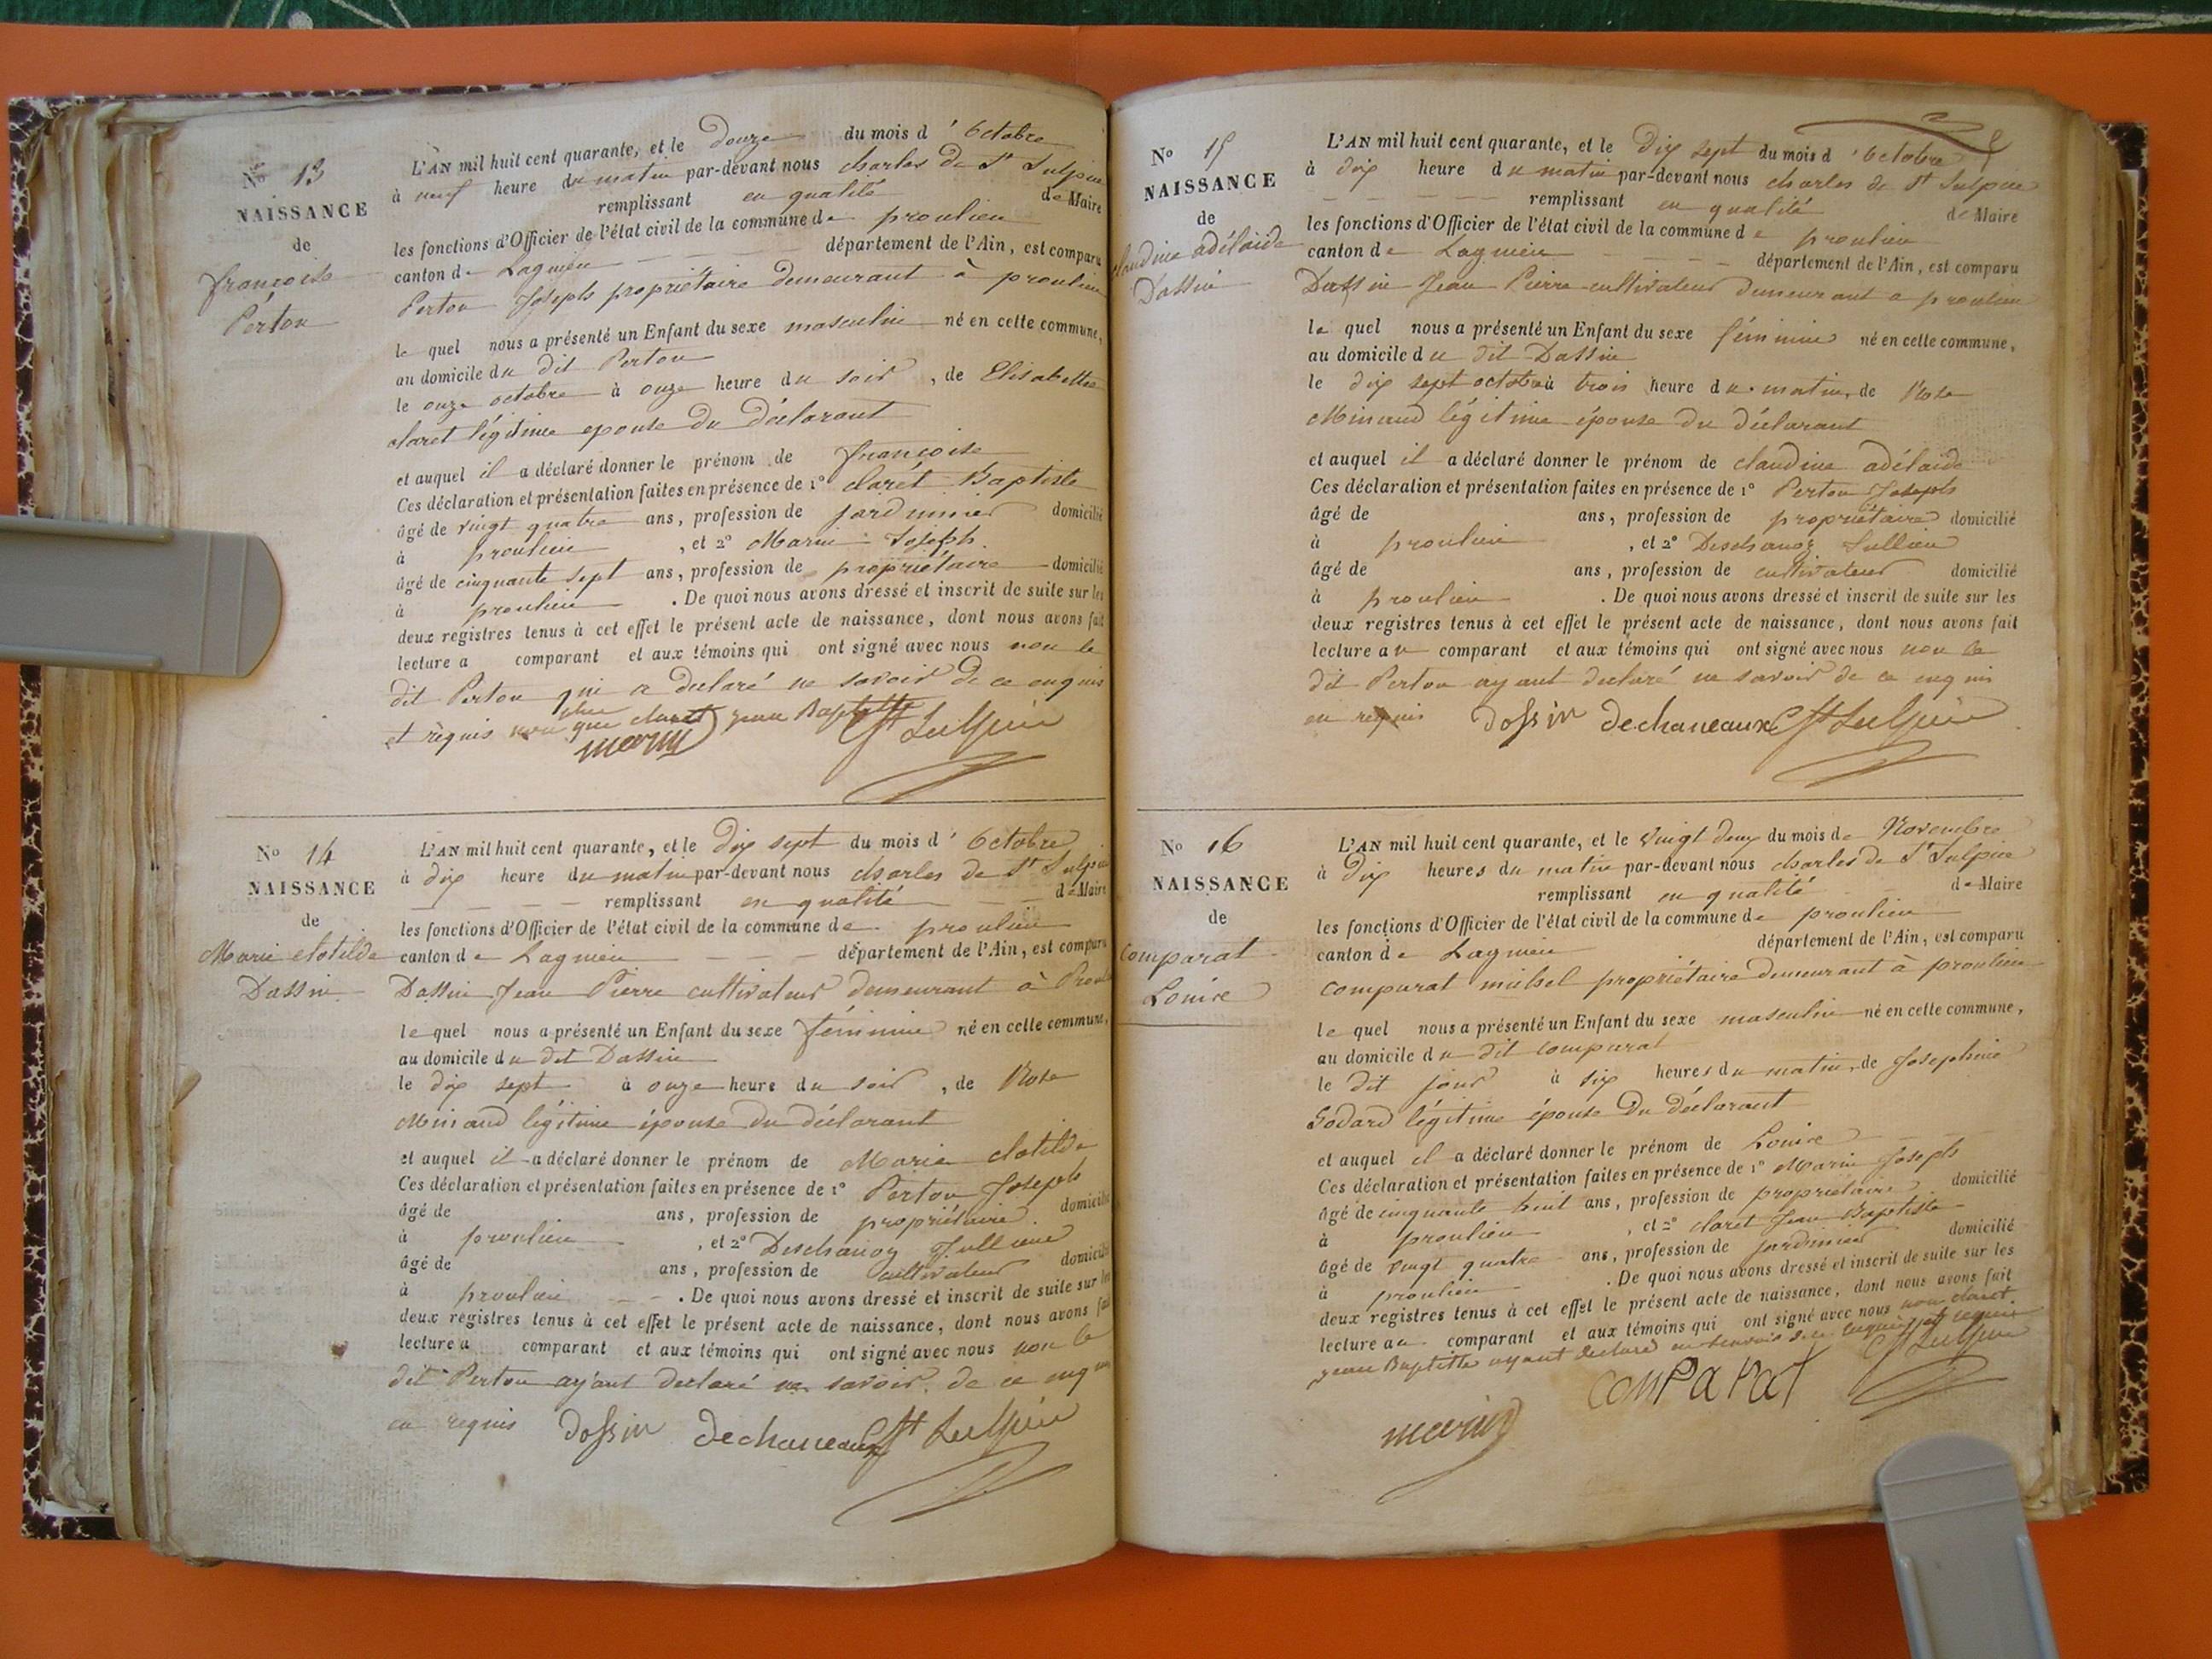 No 13
NAISSANCE
de
françoise
Perton
L'AN mil huit cent quarante, et le douze du mois d' Octobre
à neuf heure du matin par-devant nous charles de St Sulpice
remplissant en qualité de Maire
les fonctions d'Officier de l'état civil de la commune de proulieu
canton de Lagnieu département de l'Ain, est comparu
Perton Joseph propriétaire demeurant à proulieu
le quel nous a présenté un Enfant du sexe masculin né en cette commune,
au domicile du dit Perton
le onze octobre à onze heure du soir, de Elisabeth
claret légitime epouse du déclarant
et auquel il a déclaré donner le prénom de françoise
Ces déclaration et présentation faites en présence de 1° claret Baptiste
âgé de vingt quatre ans, profession de jardinnier domicilié
à proulieu, et 2° Marin Joseph
âgé de cinquante sept ans, profession de propriétaire domicilié
à proulieu. De quoi nous avons dressé et inscrit de suite sur les
deux registres tenus à cet effet le présent acte de naissance, dont nous avons fait
lecture a comparant et aux témoins qui ont signé avec nous non le
dit Perton qui a declaré ne savoir de ce enquis
et réquis non que claret jean Baptiste St Sulpice
marin
No 14
NAISSANCE
de
Marie clotilde
Dassin
L'AN mil huit cent quarante, et le dix sept du mois d' Octobre
à dix heure du matin par-devant nous charles de St Sulpice
remplissant en qualité de Maire
les fonctions d'Officier de l'état civil de la commune de proulieu
canton de Lagnieu département de l'Ain, est comparu
Dassin Jean Pierre cultivateur demeurant à Proulieu
le quel nous a présenté un Enfant du sexe féminin né en cette commune,
au domicile du dit Dassin
le dix sept à onze heure du soir, de Rose
Minaud légitime épouse du déclarant
et auquel il a déclaré donner le prénom de Marie clotilde
Ces déclaration et présentation faites en présence de 1° Perton Joseph
âgé de ans, profession de propriétaire domicilié
à proulieu, et 2° Deschanoz Jullien
âgé de ans, profession de cultivateur domicilié
à proulieu. De quoi nous avons dressé et inscrit de suite sur les
deux registres tenus à cet effet le présent acte de naissance, dont nous avons fait
lecture a comparant et aux témoins qui ont signé avec nous non le
dit Perton ayant declaré ne savoir de ce enquis
en requis dossin dechaneaux St Sulpice
No 15
NAISSANCE
de
claudine adélaide
Dassin
L'AN mil huit cent quarante, et le dix sept du mois d' Octobre
à dix heure du matin par-devant nous charles de St Sulpice
remplissant en qualité de Maire
les fonctions d'Officier de l'état civil de la commune de proulieu
canton de Lagnieu département de l'Ain, est comparu
Dassin Jean Pierre cultivateur demeurant a proulieu
le quel nous a présenté un Enfant du sexe féminin né en cette commune,
au domicile du dit Dassin
le dix sept octobre à trois heure du matin, de Rose
Minaud légitime épouse du déclarant
et auquel il a déclaré donner le prénom de claudine adélaide
Ces déclaration et présentation faites en présence de 1° Perton Joseph
âgé de ans, profession de propriétaire domicilié
à proulieu, et 2° Deschanoz Jullien
âgé de ans, profession de cultivateur domicilié
à proulieu. De quoi nous avons dressé et inscrit de suite sur les
deux registres tenus à cet effet le présent acte de naissance, dont nous avons fait
lecture au comparant et aux témoins qui ont signé avec nous non le
dit Perton ayant declaré ne savoir de ce enquis
en requis dossin dechaneaux St Sulpice
No 16
NAISSANCE
de
Comparat
Louise
L'AN mil huit cent quarante, et le vingt deux du mois de Novembre
à dix heures du matin par-devant nous charles de St Sulpice
remplissant en qualité de Maire
les fonctions d'Officier de l'état civil de la commune de proulieu
canton de Lagnieu département de l'Ain, est comparu
comparat michel propriétaire demeurant à proulieu
le quel nous a présenté un Enfant du sexe masculin né en cette commune,
au domicile du dit comparat
le dit jour à six heures du matin, de Josephine
Godard légitime épouse du déclarant
et auquel il a déclaré donner le prénom de Louise
Ces déclaration et présentation faites en présence de 1° Marin Joseph
âgé de cinquante huit ans, profession de propriétaire domicilié
à proulieu, et 2° claret Jean Baptiste
âgé de vingt quatre ans, profession de jardinnier domicilié
à proulieu. De quoi nous avons dressé et inscrit de suite sur les
deux registres tenus à cet effet le présent acte de naissance, dont nous avons fait
lecture au comparant et aux témoins qui ont signé avec nous non claret
jean Baptiste ayant declaré ne savoir de ce enquis et requis
comparat St Sulpice
marin